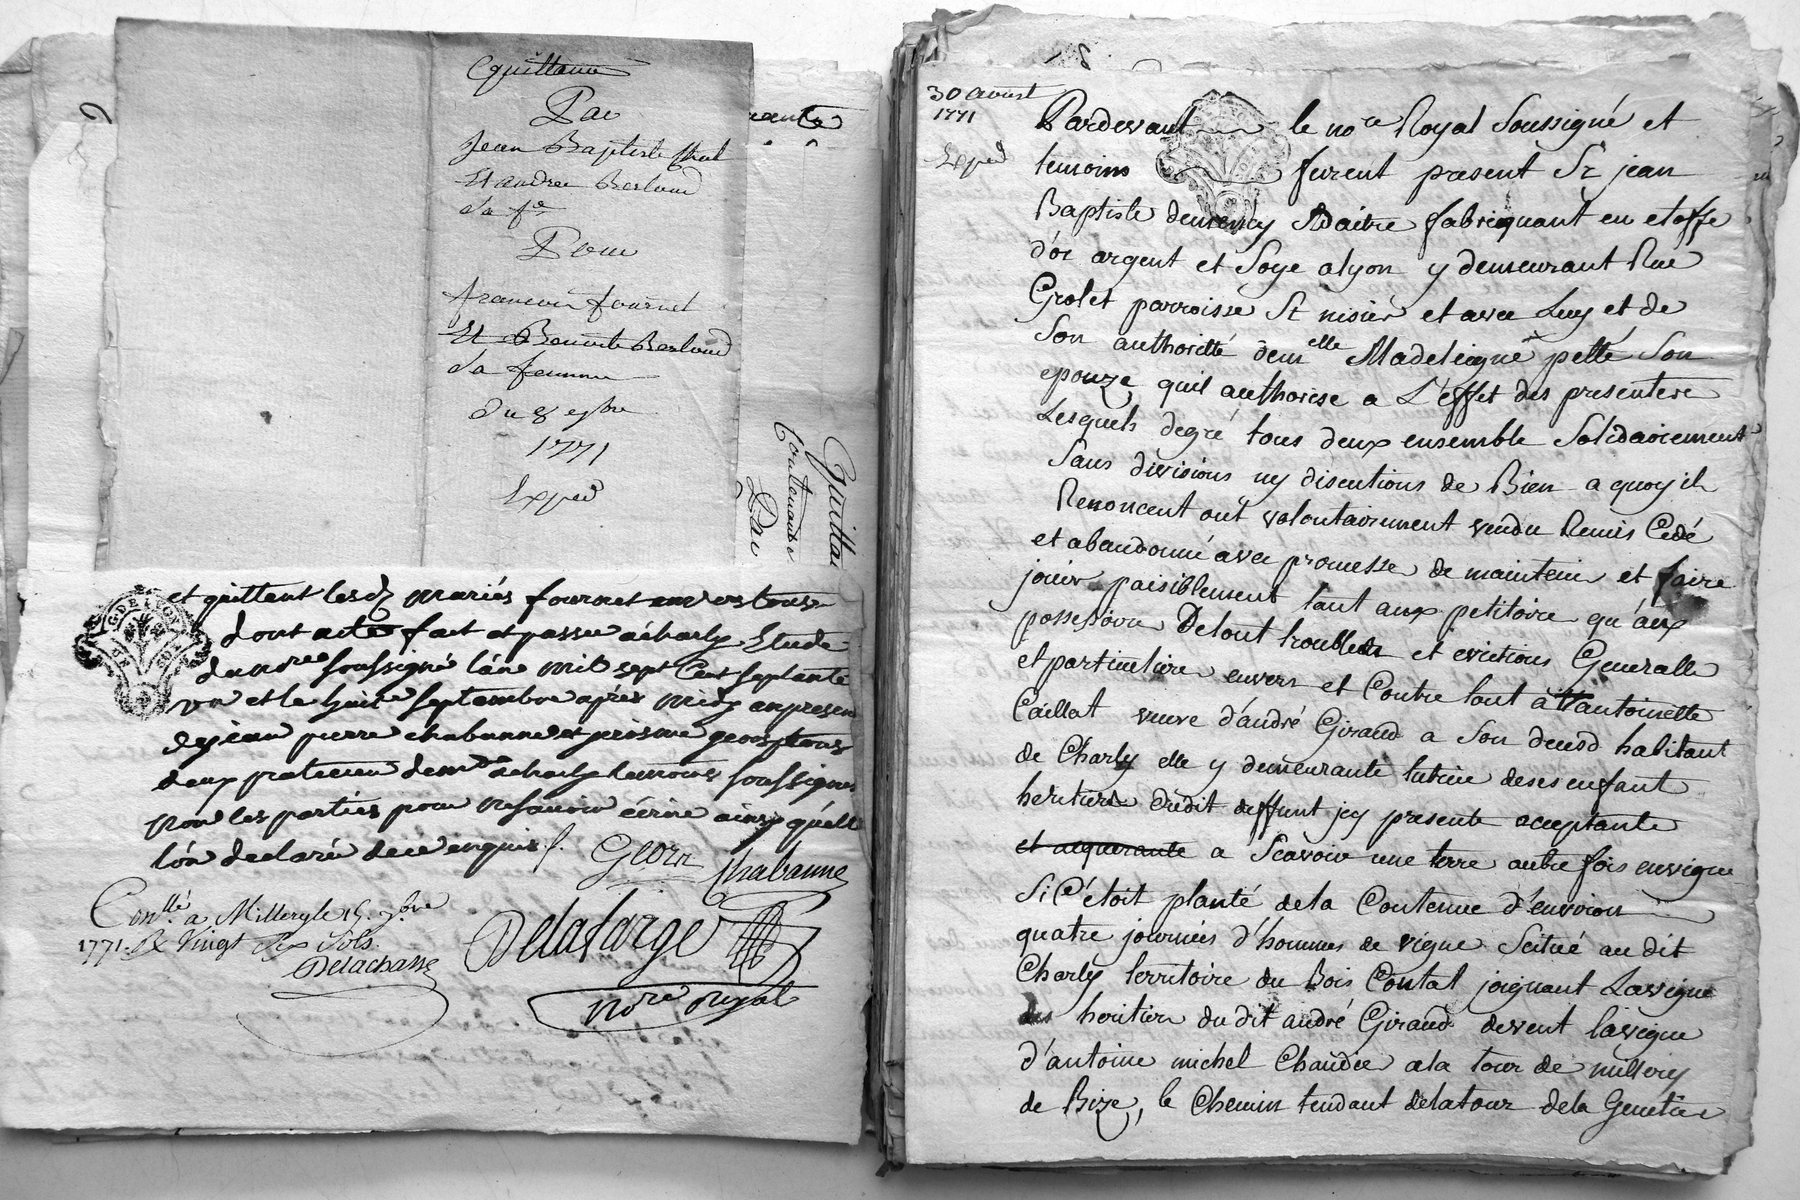 quittance
Par
Jean Baptiste
Et andree Berloud
Sa fe
Pour
francois fournet
Et Benoite Berloud
Sa femme
Du 8 7bre
1771
Exped
Quittan
Contenande
Par
et quittent lesd mariés fournet envers tous
dont acte fait et passé a charly Etude
du nore soussigné l'an mil sept Cent septante
un et le huit septembre après midy en presen
de jean pierre chabanne et
deux praticien demt a charly temoins soussignes
non les parties pour ne scavoir écrire ainsy quelle
l'on declaré de ce enquis
Geon Chabanne
Conllé a Millery le 15. 7bre
1771. R Vingt Six Sols.
Delachasse
Delafarge
nore royal
G. DE LYON
30 aoust
1771
Exped
Pardevant le nore Royal Soussigné et
temoins furent present Sr jean
Baptiste demency Maitre fabriquant en etoffe
d'or argent et Soye a lyon y demeurant Rue
Grolet parroisse St nisier et avec Luy et de
Son authorité demelle Madeleigne petté Son
epouze quil authorise a L'effet des presentere
Lesquels degré tous deux ensemble Solidairement
Sans divisions ny discutions de Bien a quoy ils
Renoncent ont volontairement vendu Remis Cedé
et abandonné avec promesse de maintenir et faire
jouir paisiblement tant aux petitoire qu'aux
possessoire De tout troubles et evictions Generalle
et particuliere envers et Contre tout à antoinette
Caillat veuve d'andré Giraud a Son deusd habitant
de Charly elle y demeurante tutrice deses enfant
heritiers dudit deffunt jcy presente acceptante
et acquerante a Scavoir une terre autre fois en vigne
Si C'étoit planté de la Contenue d'environ
quatre journées d'hommes de vigne Scitué au dit
Charly territoire du Bois Contal joignant La vigne
des heritier du dit andré Giraud devent la vigne
d'antoine michel Chaudié a la tour de millery
de Bize, le Chemin tendant de la tour de la Genetier